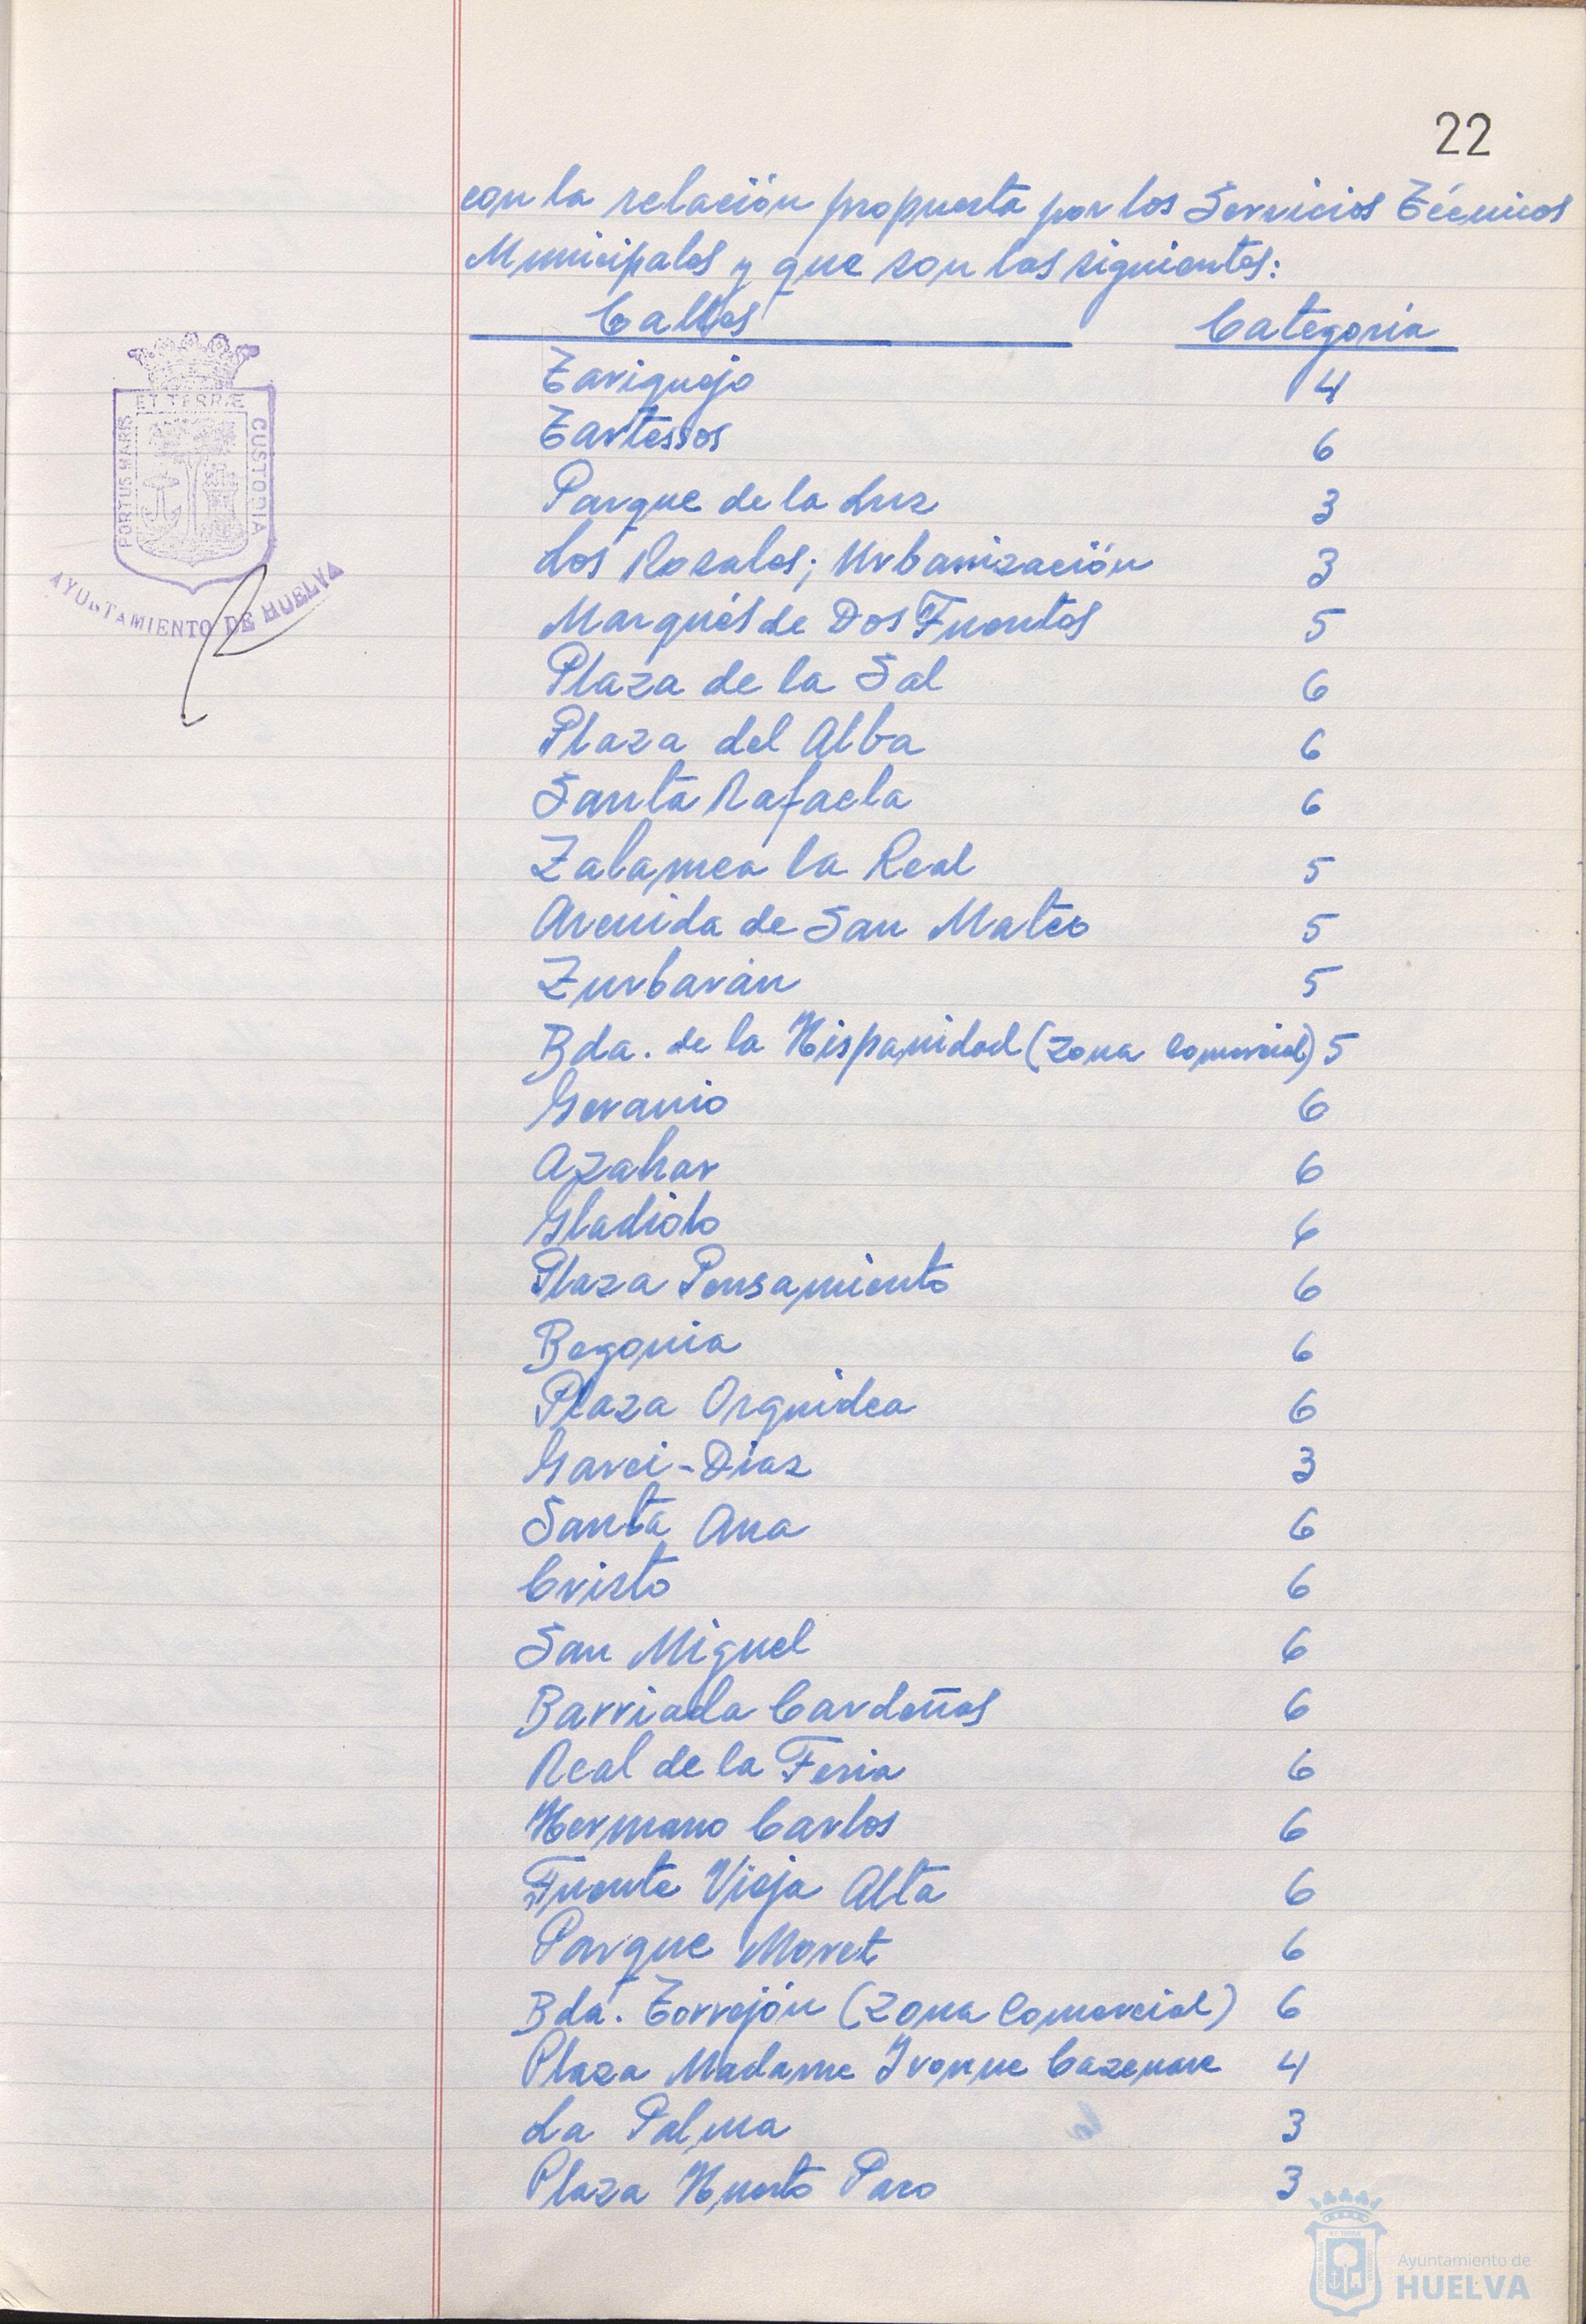 22
con la relación propuesta por los Servicios Técnicos
Municipales y que son las siguientes:
Calles Categoria
Tariquejo 4
Tartessos 6
Parque de la Luz 3
Los Rosales; Urbanización 3
Marqués de Dos Fuentes 5
Plaza de la Sal 6
Plaza del Alba 6
Santa Rafaela 6
Zalamea la Real 5
Avenida de San Mateo 5
Zurbarán 5
Bda. de la Hispanidad (Zona Comercial) 5
Geranio 6
Azahar 6
Gladiolo 6
Plaza Pensamiento 6
Begonia 6
Plaza Orquidea 6
Garci-Diaz 3
Santa Ana 6
Cristo 6
San Miguel 6
Barriada Cardeñas 6
Real de la Feria 6
Hermano Carlos 6
Fuente Vieja Alta 6
Parque Moret 6
Bda. Torrejón (Zona Comercial) 6
Plaza Madame Ivonne Cazenave 4
La Palma 3
Plaza Huerto Paco 3
PORTUS MARIS
ET TERRÆ
CUSTODIA
AYUNTAMIENTO DE HUELVA
Ayuntamiento de
HUELVA